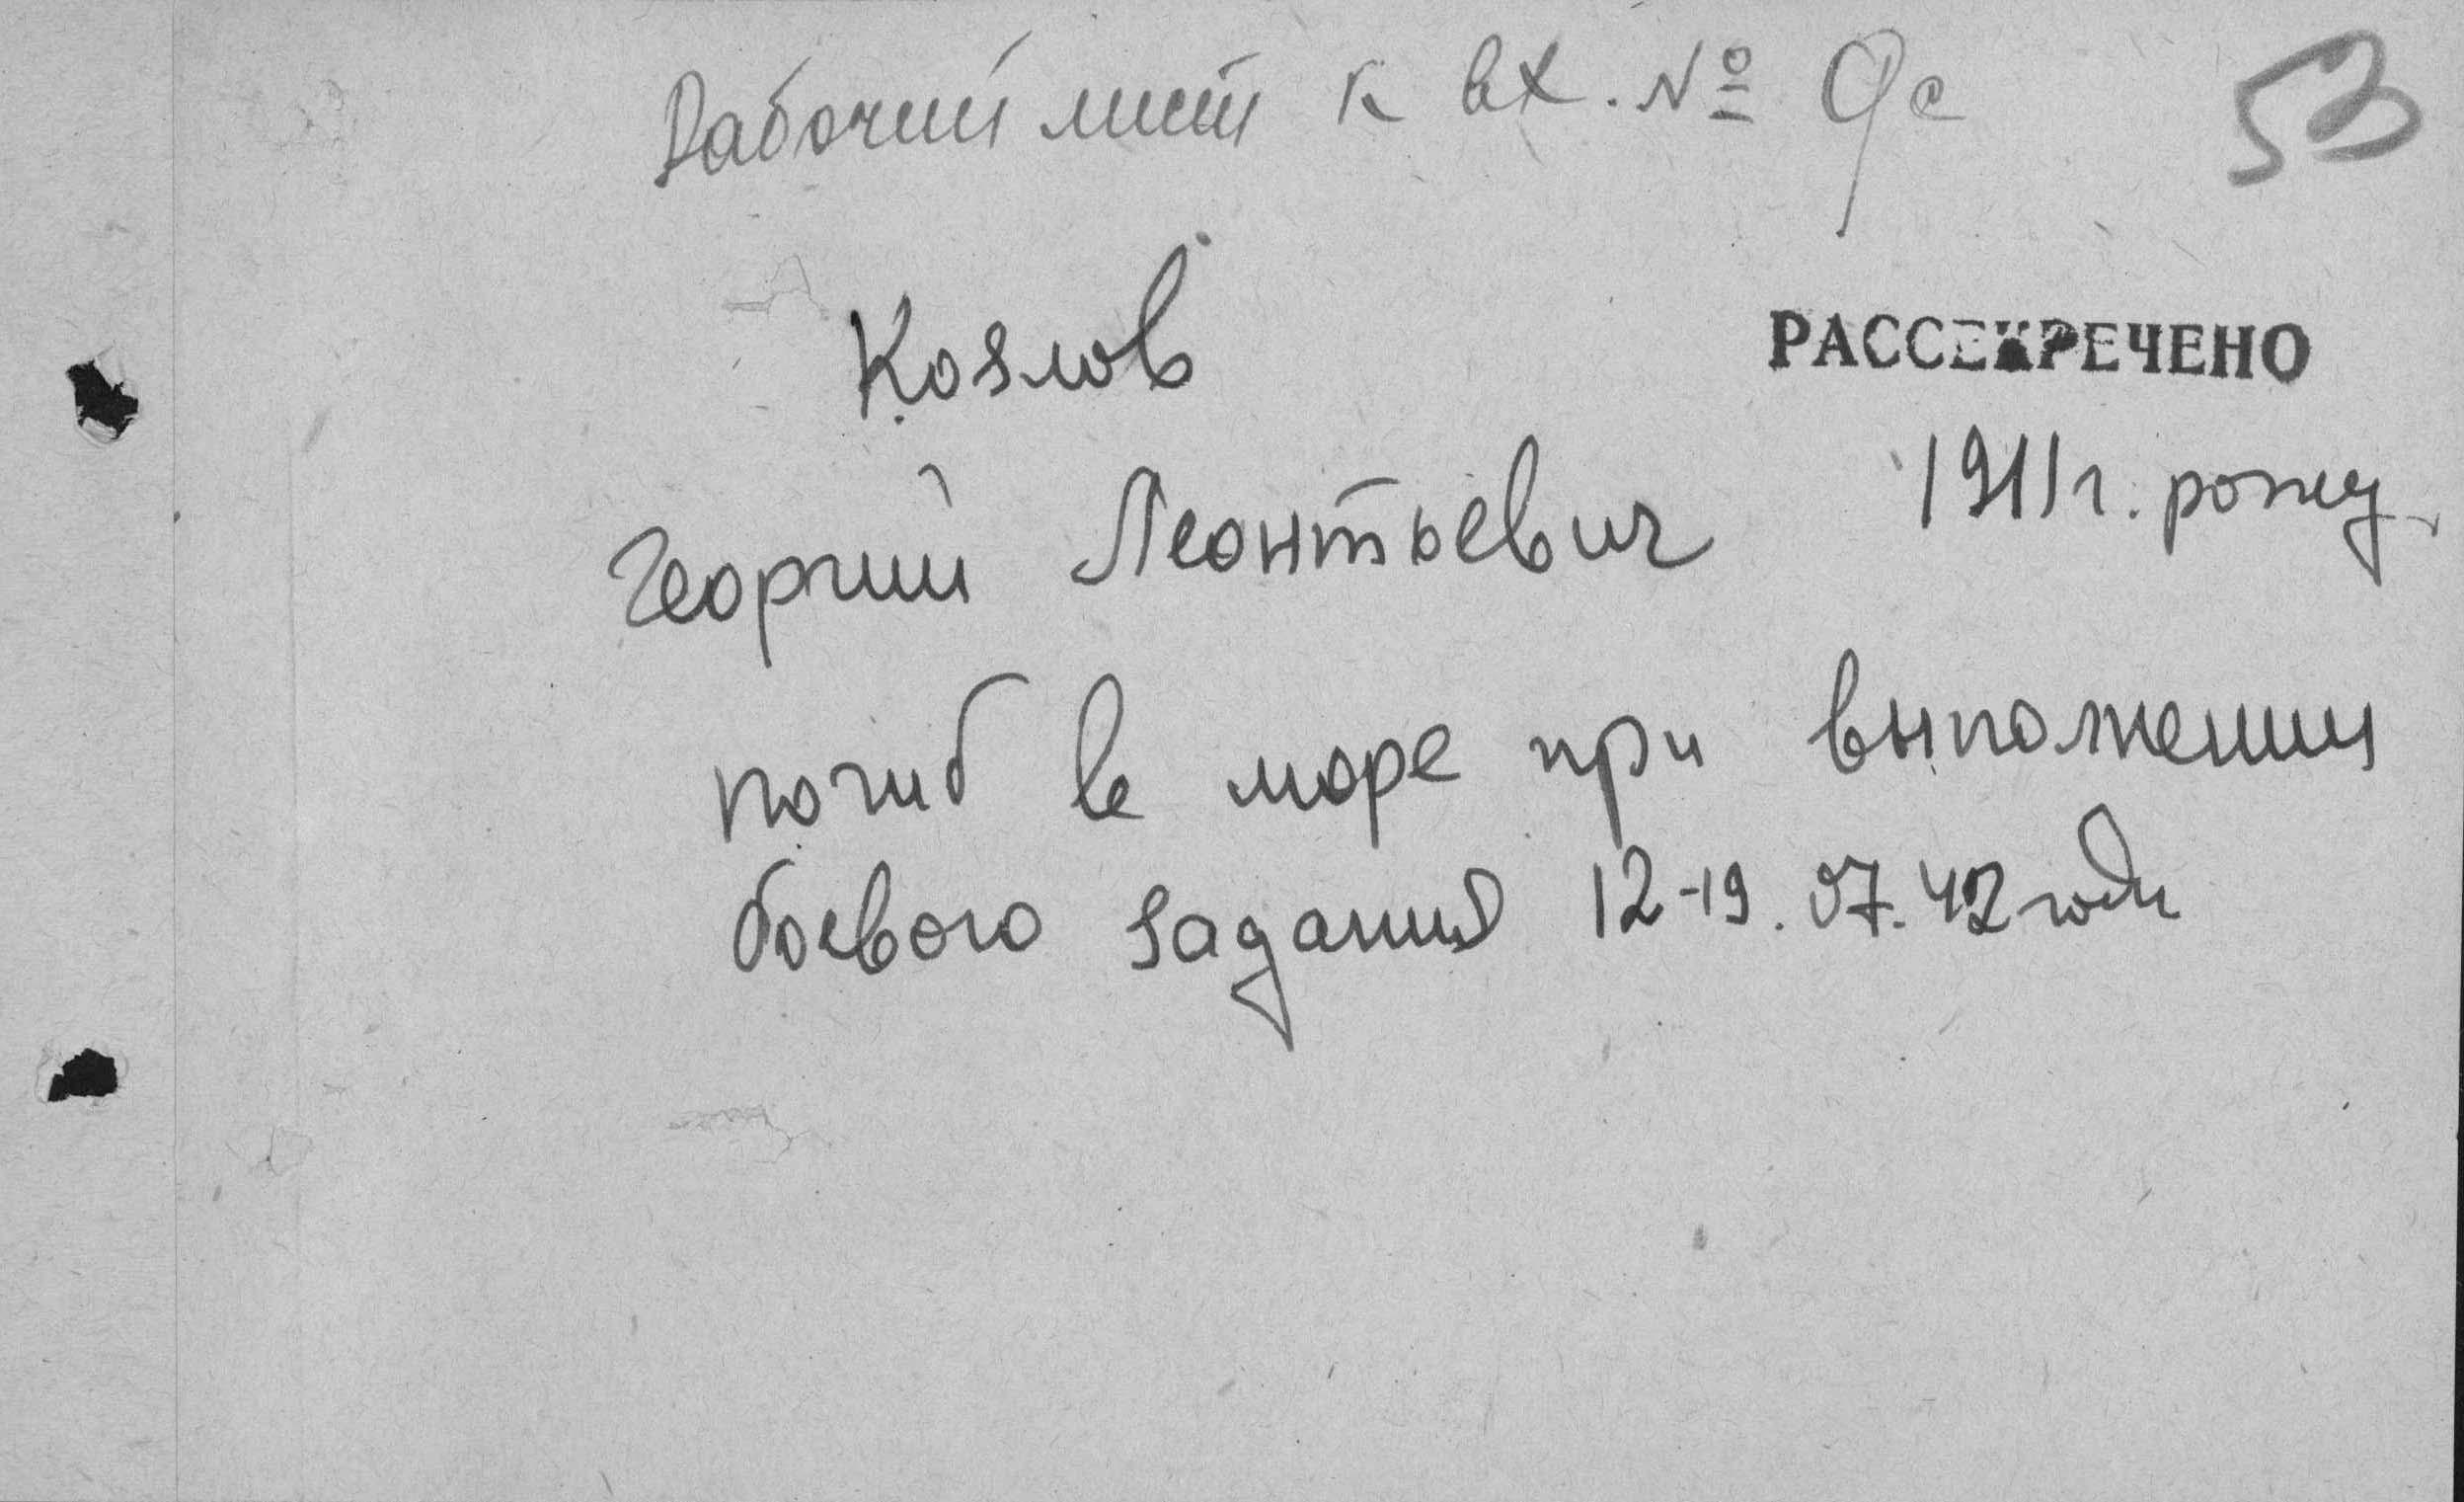 Рабочий лист к вх. № 9с
53
Козлов
РАССЕКРЕЧЕНО
Георгий Леонтьевич 1911г. рожд.
погиб в море при выполнении
боевого задания 12-19.07.42 года